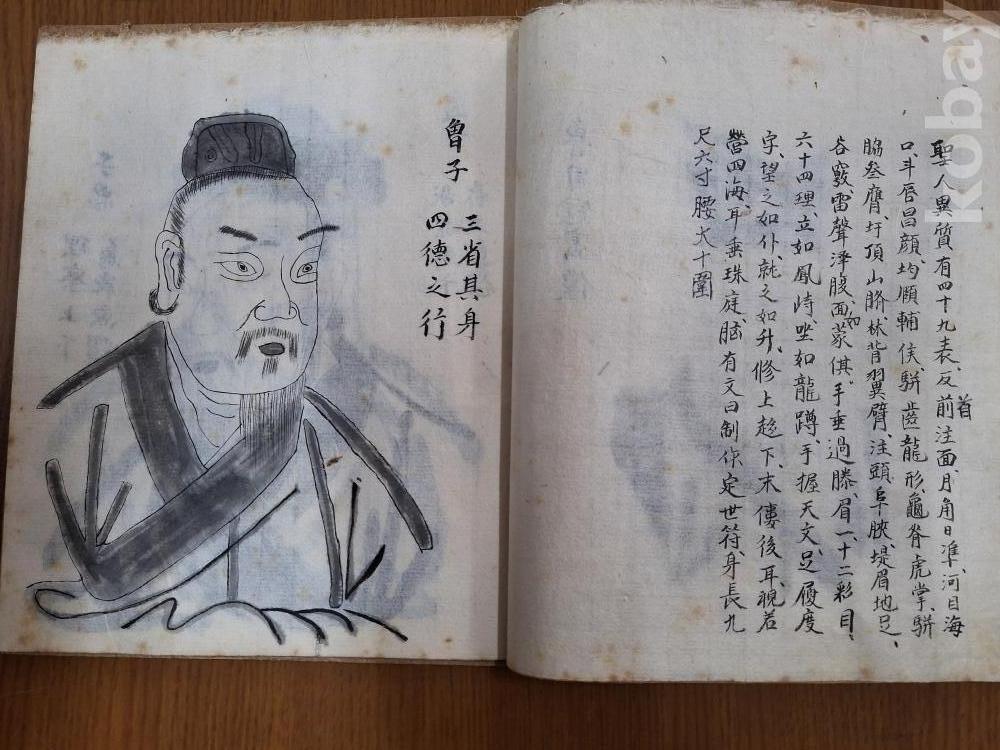 聖人異質有四十九表反前注面月角日準河目海
首
口斗唇昌顔均頥輔侯騈齒龍形龜脊虎掌騈
脇叄膺圩頂山臍林背翼臂注頭阜脥堤眉地足
谷竅雷聲澤腹面蒙倛手垂過膝眉一十二彩目
如
六十四理立如鳳峙坐如龍蹲手握天文足履度
字望之如仆就之如升修上趍下末僂後耳視若
營四海耳垂珠庭胸有文曰制作定世符身長九
尺六寸腰大十圍
曾子
三省其身
四德之行
kobay